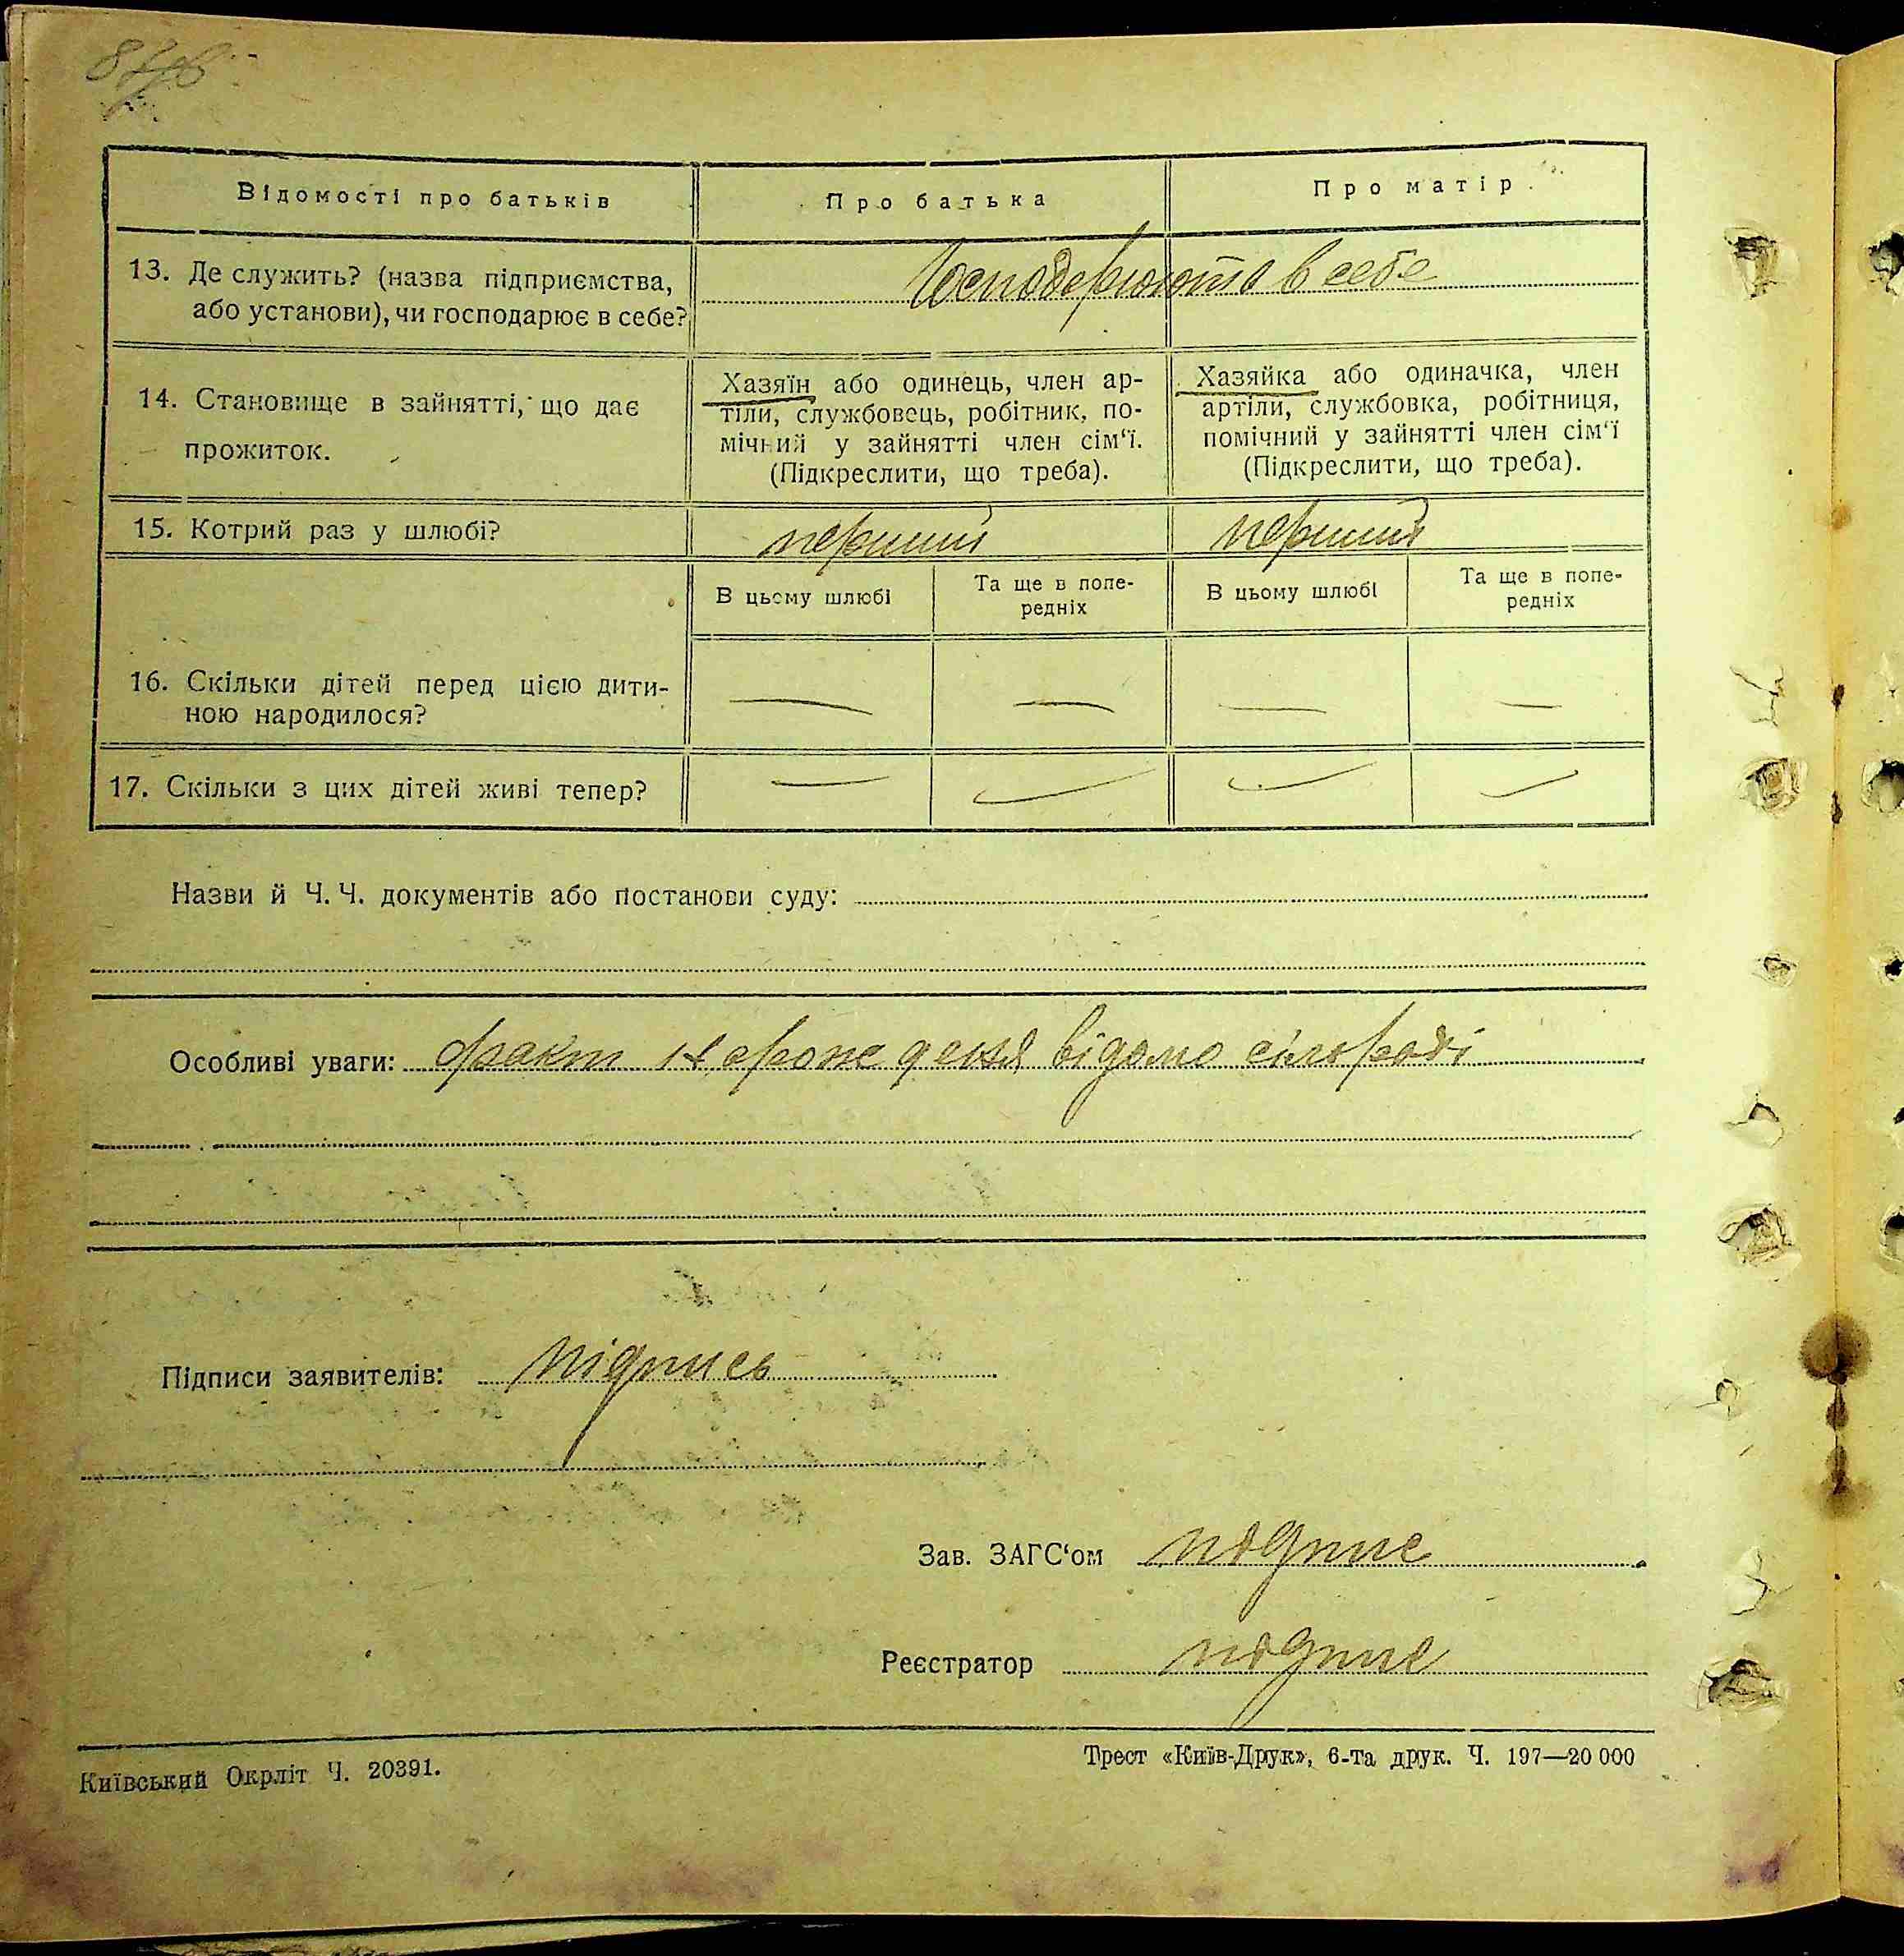 Відомості про батьків
Про батька
Про матір
13. Де служить? (назва підприємства,
або установи), чи господарює в себе?
Господарюють в себе
14. Становище в зайнятті, що дає
прожиток.
Хазяїн або одинець, член ар-
тіли, службовець, робітник, по-
мічний у зайнятті член сім‘ї.
(Підкреслити, що треба).
Хазяйка або одиначка, член
артіли, службовка, робітниця,
помічний у зайнятті член сім‘ї
(Підкреслити, що треба).
15. Котрий раз у шлюбі?
перший
перший
В цьому шлюбі
Та ще в попе-
редніх
В цьому шлюбі
Та ще в попе-
редніх
16. Скільки дітей перед цією дити-
ною народилося?
— — — —
17. Скільки з цих дітей живі тепер?
— — — —
Назви й Ч. Ч. документів або постанови суду:
Особливі уваги: факт народження відомо сільраді
Підписи заявителів: підпись
Зав. ЗАГС‘ом підпис
Реєстратор підпис
Київський Окрліт Ч. 20391.
Трест «Київ-Друк», 6-та друк. Ч. 197—20 000